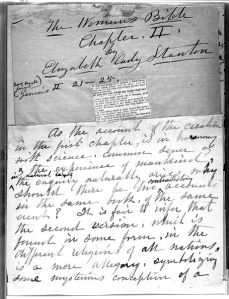 The Woman's Bible
Chapter II.
by
Elizabeth Cady Stanton
Genesis II 21–25.
As the account of the creation
in the first chapter, is in harmony
with science, common sense, &
the experience of mankind
the enquiry naturally arises, why
should there be two contradictory accounts
in the same book, of the same
event? It is fair to infer that
the second version, which is
found in some form, in the
different religions of all nations,
is a mere allegory, symbolizing
some mysterious conception of a